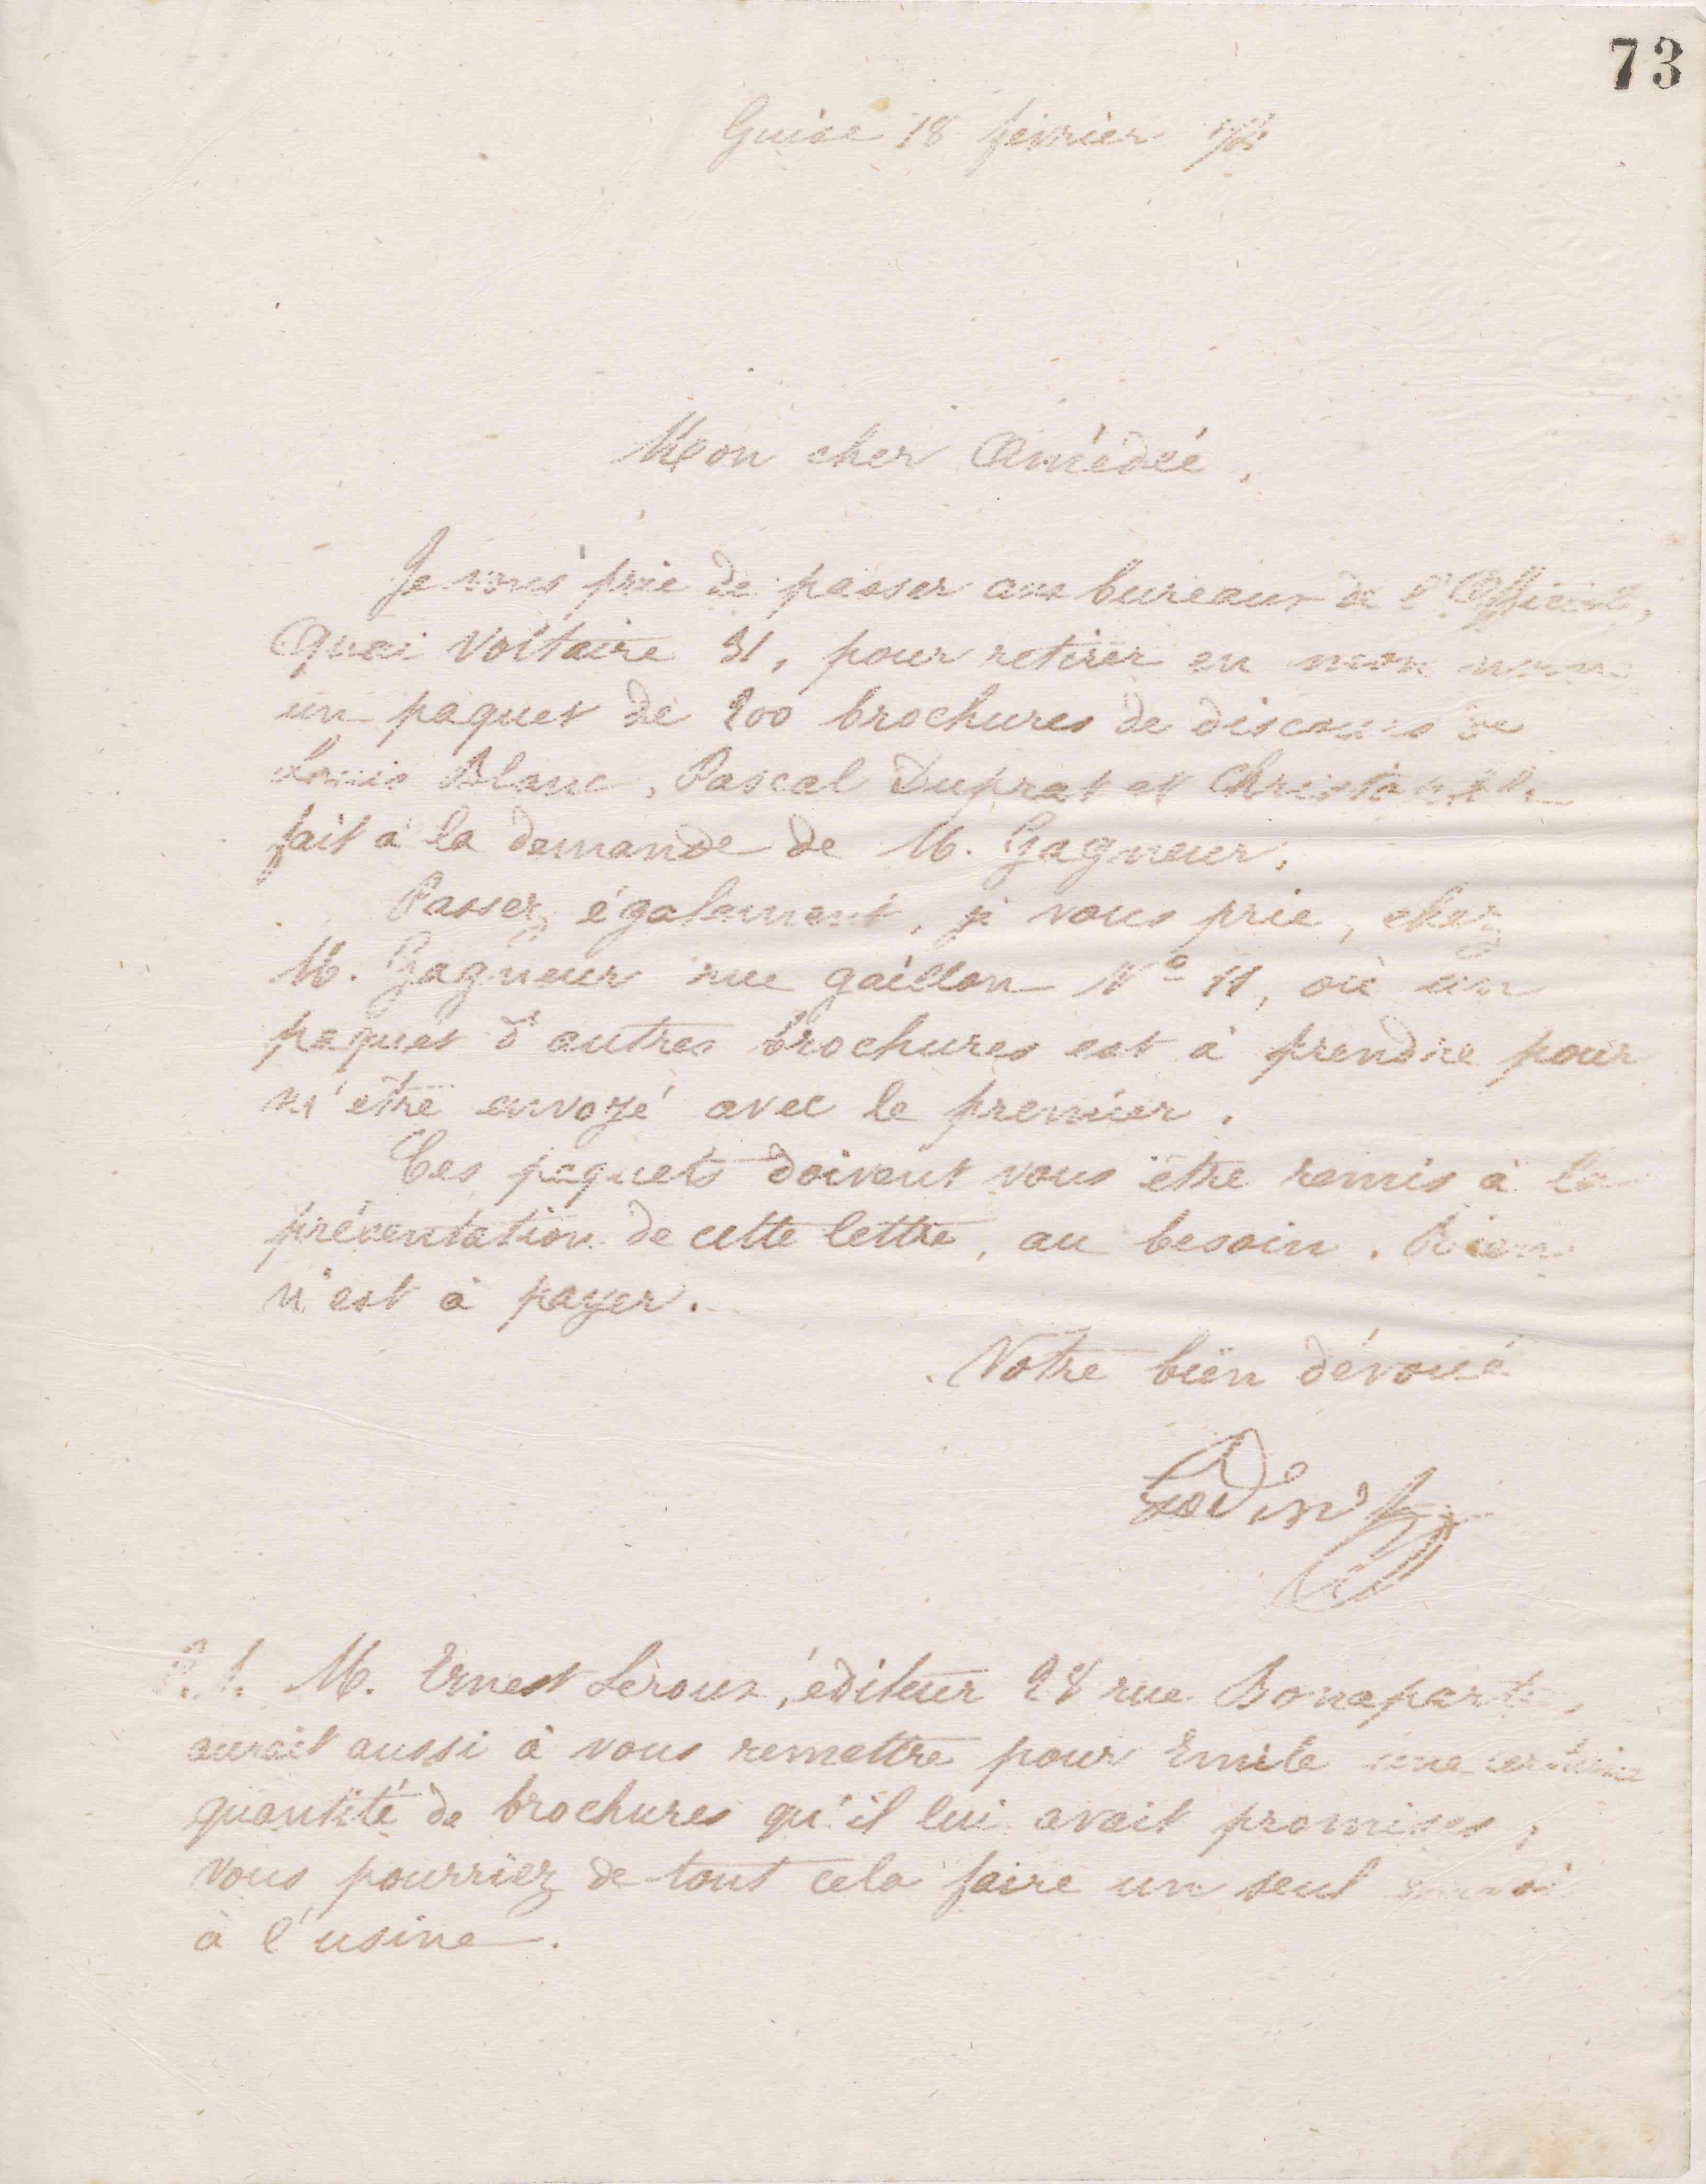 73
Guise 18 février
Mon cher Amédée,
Je vous prie de passer aux bureaux de l'Officiel,
Quai Voltaire 31, pour retirer en mon nom
un paquet de 200 brochures de discours de
Louis Blanc, Pascal Duprat et
fait à la demande de M. Gagneur.
Passez également, je vous prie, chez
M. Gagneur rue gaillon No 11, où un
paquet d'autres brochures est à prendre pour
m'être envoyé avec le premier.
Ces paquets doivent vous être remis à la
présentation de cette lettre, au besoin. Rien
n'est à payer.
Votre bien dévoué
Godin
P.S. M. Ernest Leroux, éditeur 28 rue Bonaparte,
aurait aussi à vous remettre pour Emile une certaine
quantité de brochures qu'il lui avait promises,
vous pourriez de tout cela faire un seul envoi
à l'usine.